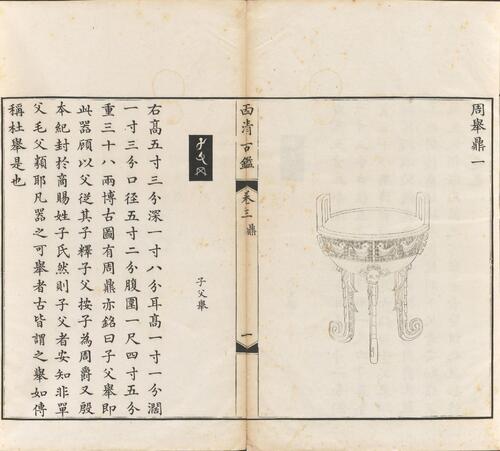 周舉鼎一
西清古鑑
卷三 鼎
一
子父舉
右高五寸三分深一寸八分耳高一寸一分濶
一寸三分口徑五寸二分腹圍一尺四寸五分
重三十八兩博古圖有周鼎亦銘曰子父舉即
此器顧以父從其子釋子父按子為周爵又殷
本紀封於商賜姓子氏然則子父者安知非單
父毛父類耶凡器之可舉者古皆謂之舉如傳
稱杜舉是也